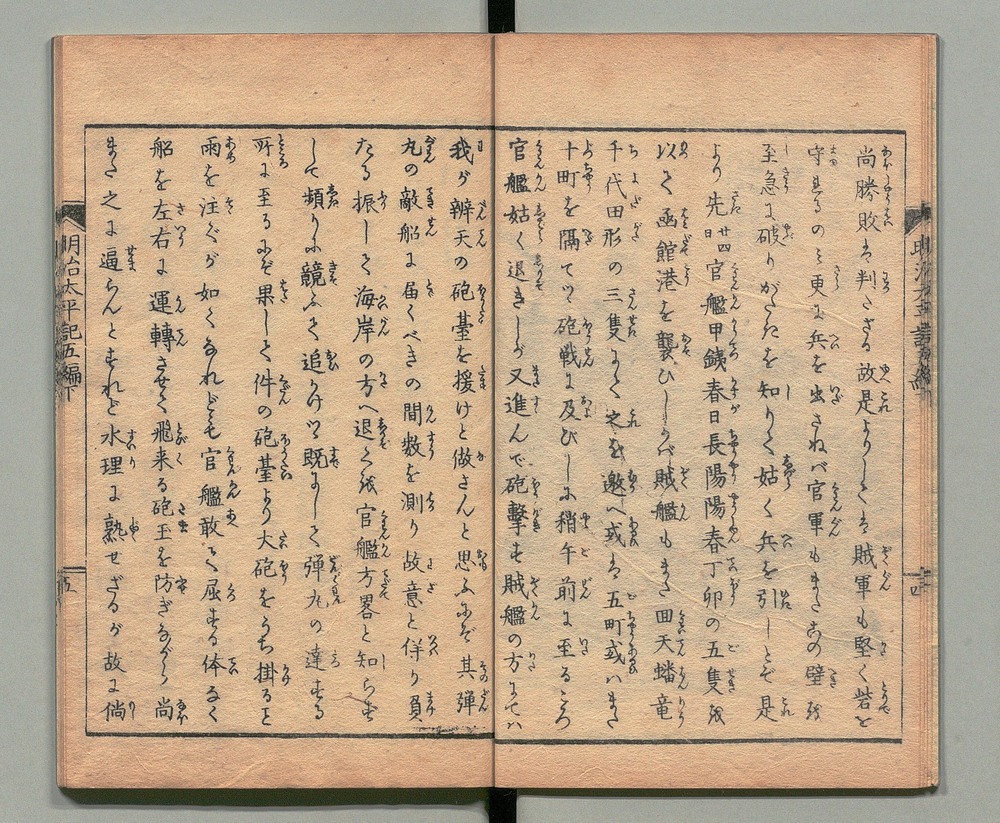 尚勝敗は判さざる故是よりして賊軍も堅く砦を
守まるのミ更に兵を出さねバ官軍もまた此の壁の
至急に破りがたきを知りて姑く兵を引しとぞ是
より先日廿四官艦甲鉄春日長陽陽春丁卯の五隻の
以て函館港を襲ひしかバ賊艦もまた回天蟠竜
千代田形の三隻にて之を邀へ或は五町或ハまた
十町を隔てゝ砲戦に及びしに稍午前に至るころ
官艦姑く退きしが又進んで砲撃す賊艦の方にてハ
我が辨天の砲臺を援けと做さんと思ふにぞ其弾
丸の敵船に届くべきの間数を測り故意と佯り負
たる振して海岸の方へ退くを官艦方畧と知らず
して頻りに競ふて追かけつ既にして弾丸の達する
所に至るにぞ果して件の砲臺より大砲をうち掛ること
雨を注ぐが如くなれども官艦敢て屈する体なく
船を左右に運轉させて飛来る砲玉を防ぎながら尚
まさに之に逼らんとすれど水理に熟せざるが故に倘
明治太平記五編下
五